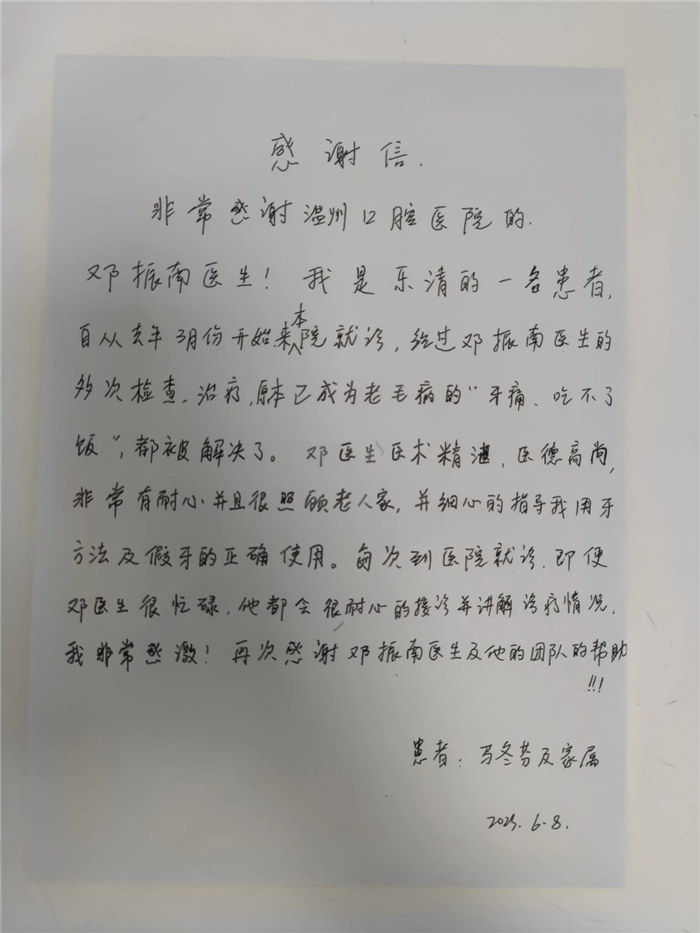 感谢信.
非常感谢温州口腔医院的.
邓振南医生！我是乐清的一名患者,
自从去年3月份开始来本院就诊,经过邓振南医生的
多次检查.治疗,原本已成为老毛病的“牙痛、吃不了
饭”,都被解决了。邓医生医术精湛,医德高尚,
非常有耐心并且很照顾老人家,并细心的指导我用牙
方法及假牙的正确使用。每次到医院就诊.即便
邓医生很忙碌.他都会很耐心的接诊并讲解诊疗情况.
我非常感激！再次感谢邓振南医生及他的团队的帮助
!!!
患者:马冬芬及家属
2025.6-8.